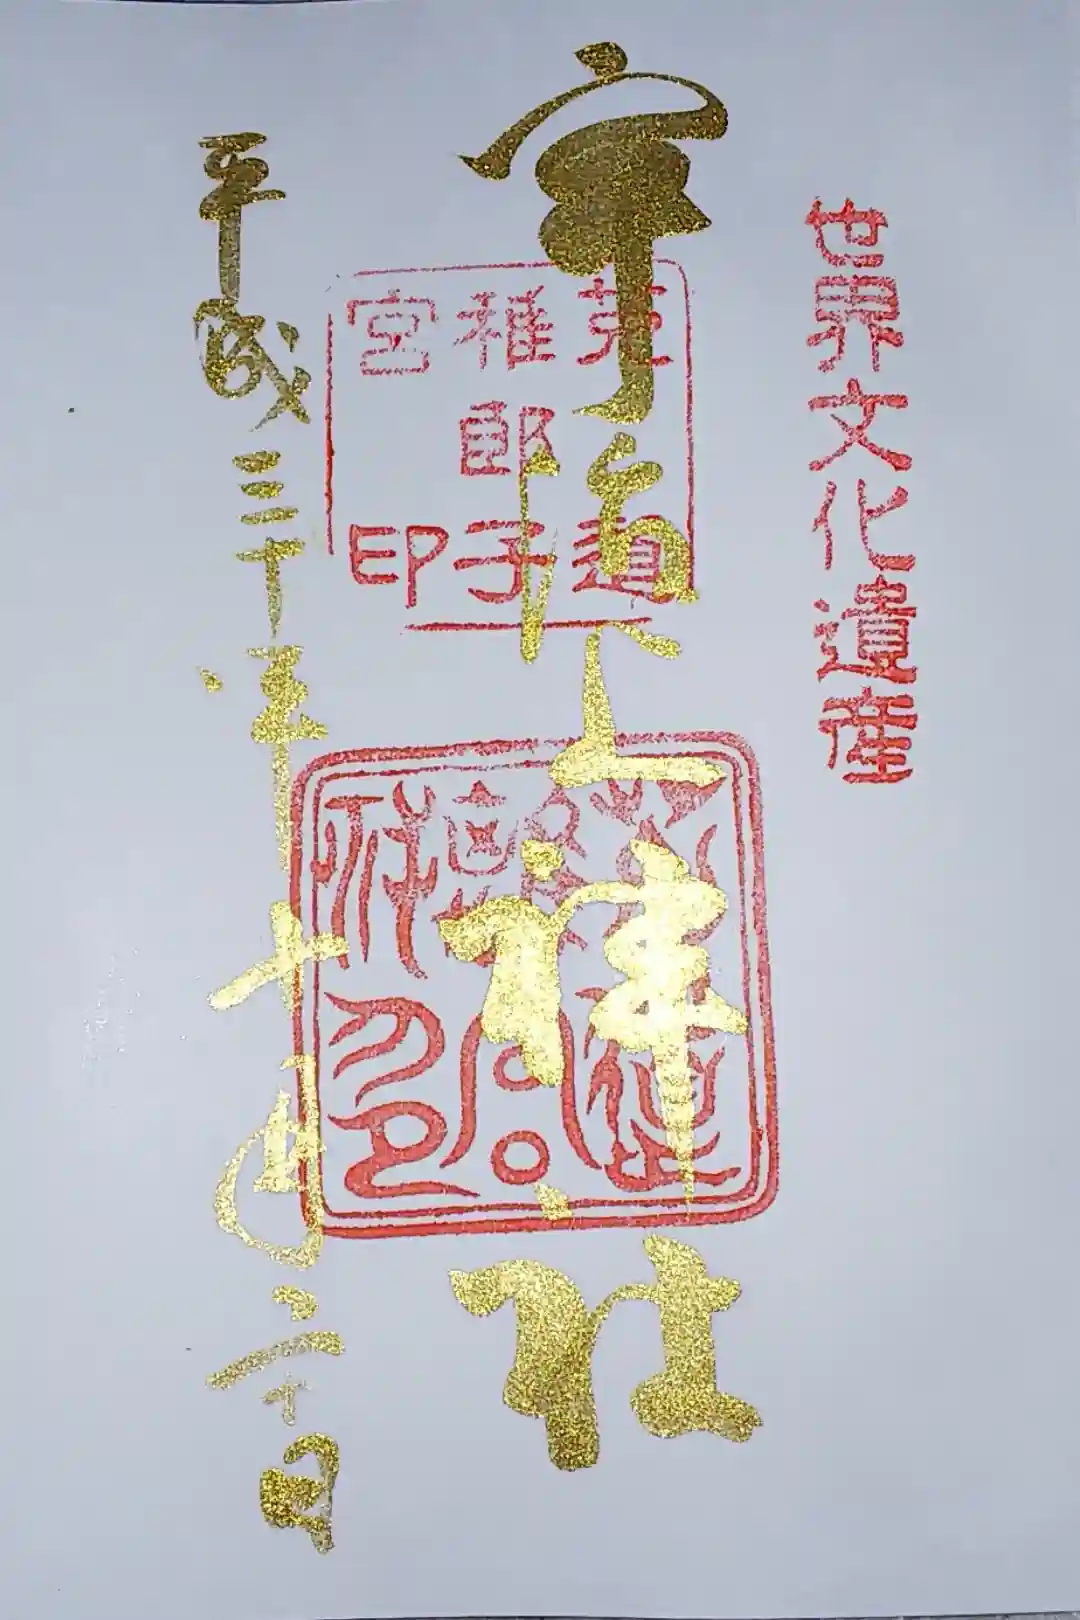 世界文化遺産
宇治上神社
菟道
稚郎子
宮印
平成三十年十一月二十日